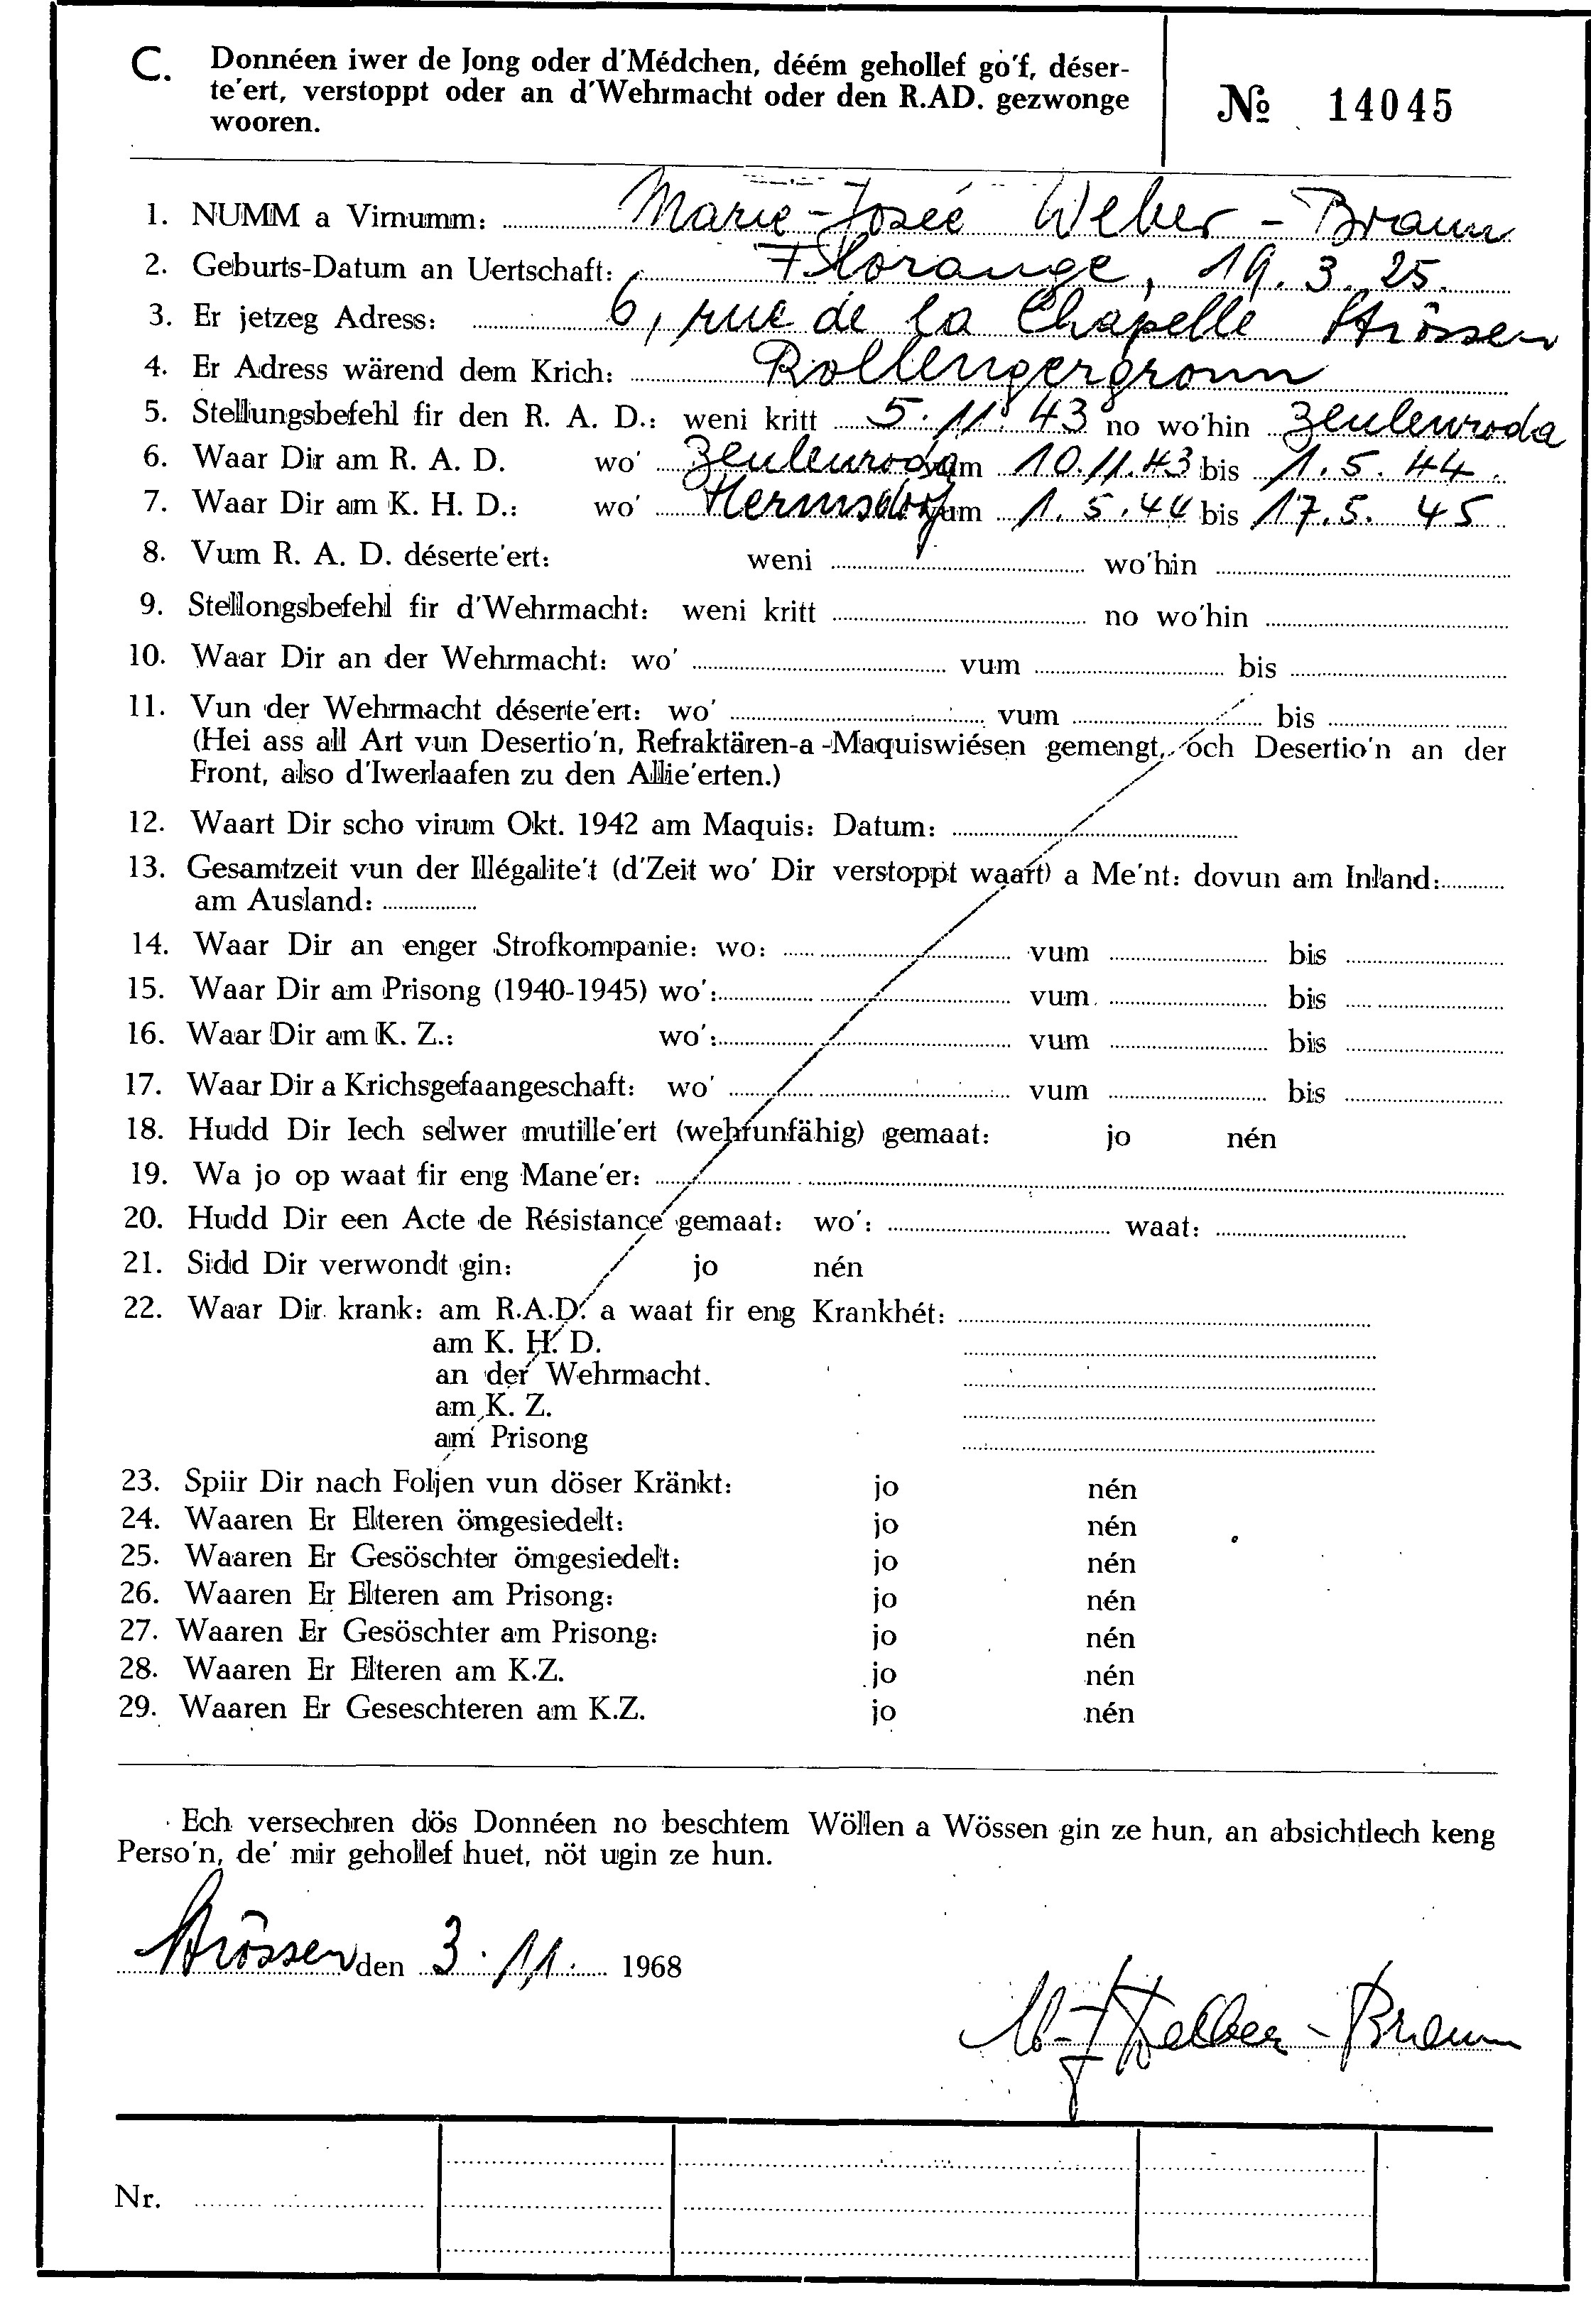 C. Donnéen iwer de Jong oder d'Médchen, déém gehollef go'f, déser-
te'ert, verstoppt oder an d'Wehrmacht oder den R.AD. gezwonge
wooren.
№ 14045
1. NUMM a Virnumm: Marie-Josée Weber-Braun
2. Geburts-Datum an Uertschaft: Florange, 19.3.25.
3. Er jetzeg Adress: 6, rue de la Chapelle Strössen
4. Er Adress wärend dem Krich: Rollengergronn
5. Stellungsbefehl fir den R. A. D.: weni kritt 5.11.43 no wo'hin Zeulenroda
6. Waar Dir am R. A. D. wo' Zeulenroda vum 10.11.43 bis 1.5.44.
7. Waar Dir am K. H. D.: wo' Hermsdorf vum 1.5.44 bis 17.5.45
8. Vum R. A. D. déserte'ert: weni wo'hin
9. Stellongsbefehl fir d'Wehrmacht: weni kritt no wo'hin
10. Waar Dir an der Wehrmacht: wo' vum bis
11. Vun der Wehrmacht déserte'ert: wo' vum bis
(Hei ass all Art vun Desertio'n, Refraktären-a-Maquiswiésen gemengt, och Desertio'n an der
Front, also d'Iwerlaafen zu den Allie'erten.)
12. Waart Dir scho virum Okt. 1942 am Maquis: Datum:
13. Gesamtzeit vun der Illégalite't (d'Zeit wo' Dir verstoppt waart) a Me'nt: dovun am Inland:
am Ausland:
14. Waar Dir an enger Strofkompanie: wo: vum bis
15. Waar Dir am Prisong (1940-1945) wo': vum bis
16. Waar Dir am K. Z.: wo': vum bis
17. Waar Dir a Krichsgefaangeschaft: wo' vum bis
18. Hudd Dir Iech selwer mutille'ert (wehrunfähig) gemaat: jo nén
19. Wa jo op waat fir eng Mane'er:
20. Hudd Dir een Acte de Résistance gemaat: wo': waat:
21. Sidd Dir verwondt gin: jo nén
22. Waar Dir krank: am R.A.D. a waat fir eng Krankhét:
am K. H. D.
an der Wehrmacht.
am K. Z.
am Prisong
23. Spiir Dir nach Foljen vun döser Kränkt: jo nén
24. Waaren Er Elteren ömgesiedelt: jo nén
25. Waaren Er Gesöschter ömgesiedelt: jo nén
26. Waaren Er Elteren am Prisong: jo nén
27. Waaren Er Gesöschter am Prisong: jo nén
28. Waaren Er Elteren am K.Z. jo nén
29. Waaren Er Geseschteren am K.Z. jo nén
Ech versechren dös Donnéen no beschtem Wöllen a Wössen gin ze hun, an absichtlech keng
Perso'n, de' mir gehollef huet, nöt ugin ze hun.
Strössen den 3.11. 1968
M-J Weber-Braun
Nr.